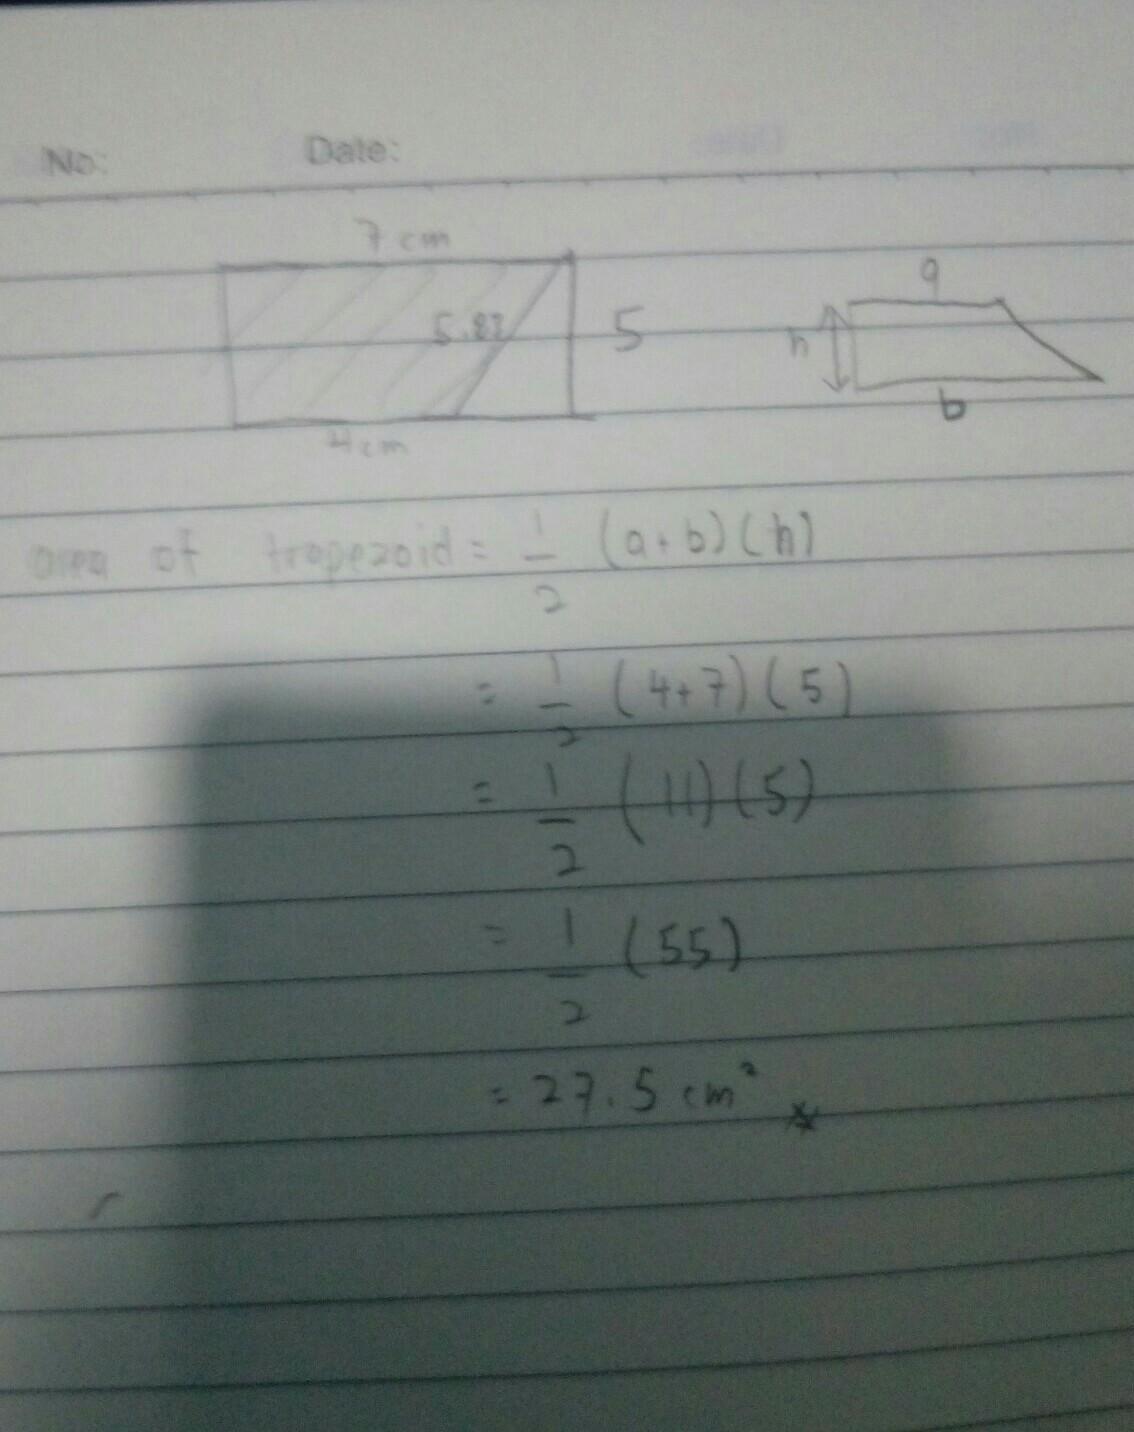 No: Date:
7 cm
5.83 5
4cm
a
h
b
area of trapezoid = 1/2 (a+b)(h)
= 1/2 (4+7)(5)
= 1/2 (11)(5)
= 1/2 (55)
= 27.5 cm²